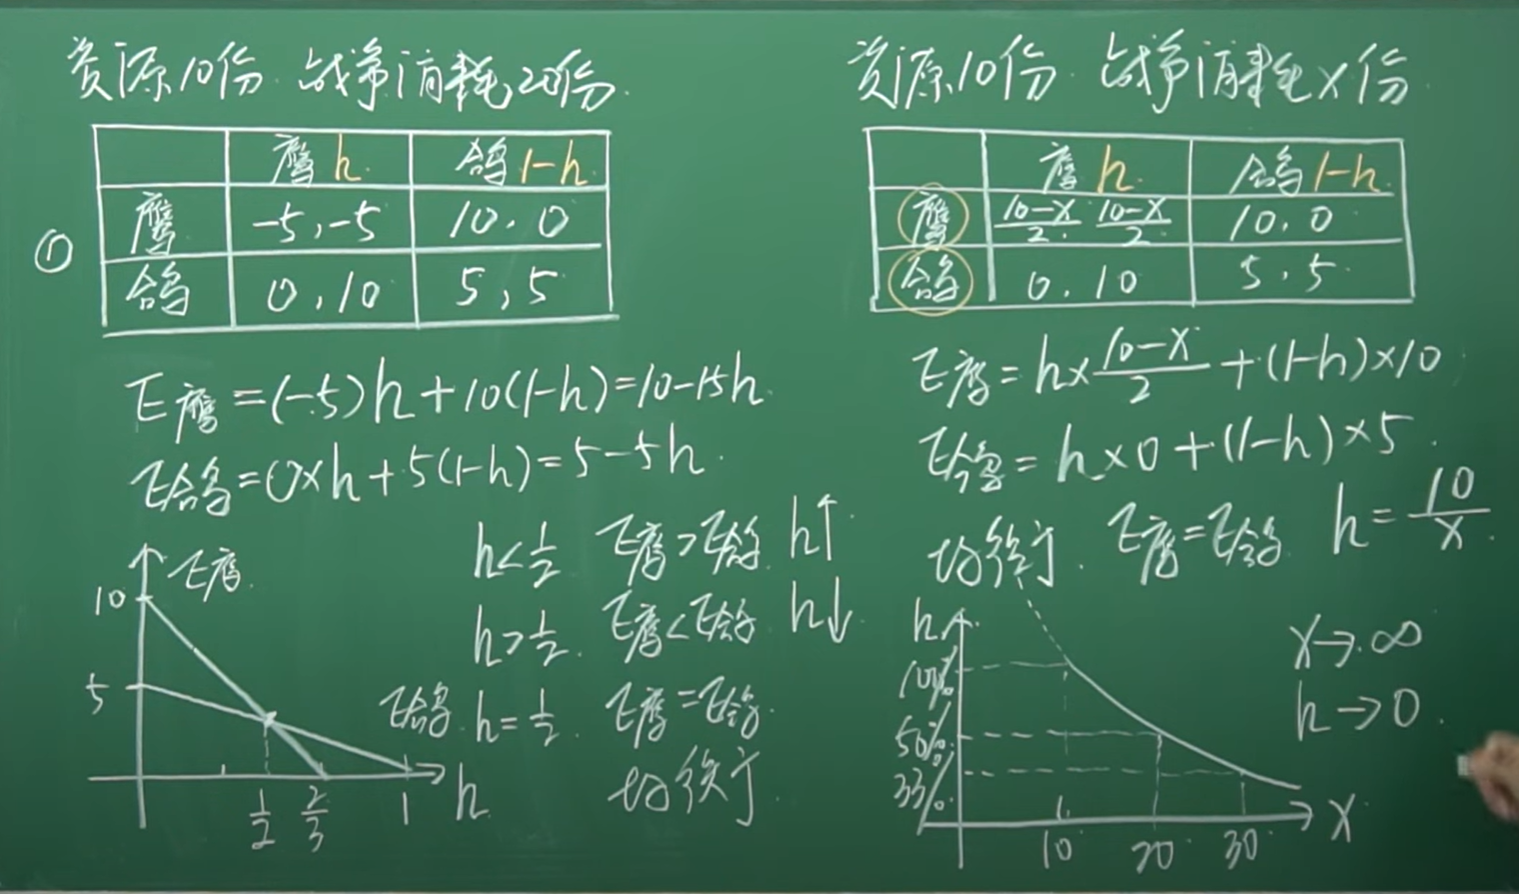 资源10份 战争消耗20份
鹰 h 鸽 1-h
① 鹰 -5,-5 10,0
鸽 0,10 5,5
E鹰=(-5)h+10(1-h)=10-15h
E鸽=0×h+5(1-h)=5-5h
h<1/2 E鹰>E鸽 h↑
h>1/2 E鹰<E鸽 h↓
h=1/2 E鹰=E鸽
均衡
E鹰
10
5
E鸽
1/2 2/3 1 h
资源10份 战争消耗x份
鹰 h 鸽 1-h
鹰 (10-x)/2 (10-x)/2 10,0
鸽 0,10 5,5
E鹰=h×(10-x)/2+(1-h)×10
E鸽=h×0+(1-h)×5
均衡 E鹰=E鸽 h=10/x
x→∞
h→0
h
100%
50%
33%
10 20 30 x